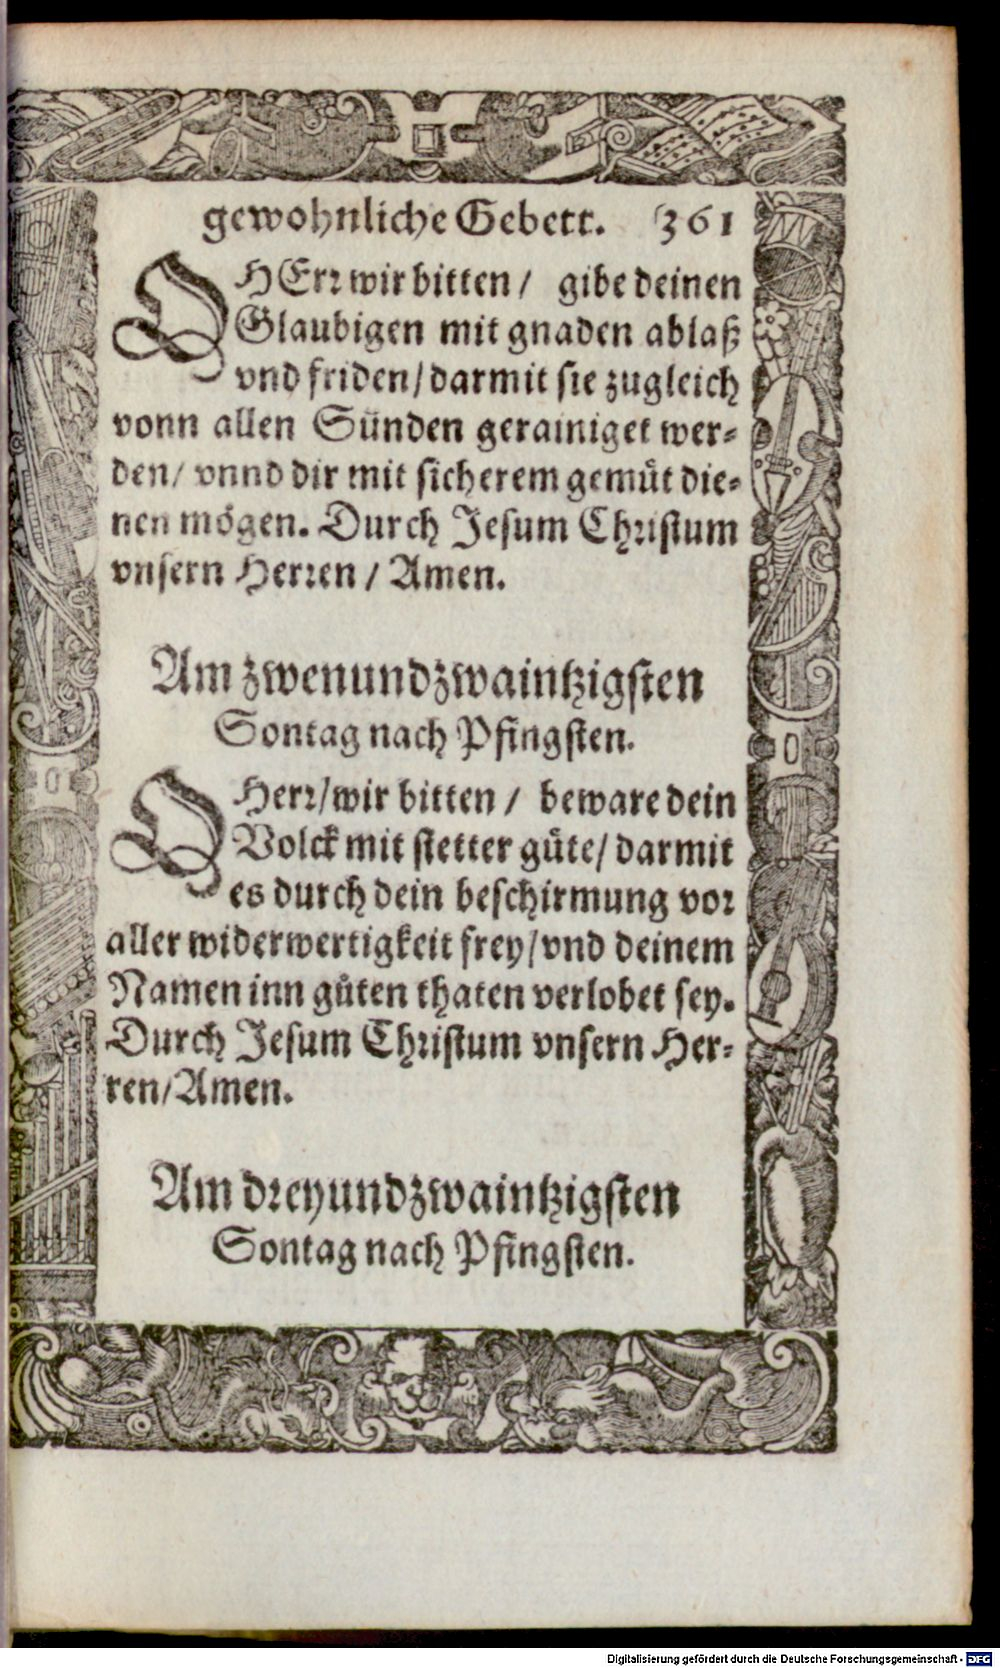 gewohnliche Gebett. 361
O HErr wir bitten / gibe deinen
Glaubigen mit gnaden ablaß
vnd friden / darmit sie zugleich
vonn allen Sünden gerainiget wer-
den / vnnd dir mit sicherem gemüt die-
nen mögen. Durch Jesum Christum
vnsern Herren / Amen.
Am zwenundzwaintzigsten
Sontag nach Pfingsten.
O Herr / wir bitten / beware dein
Volck mit stetter güte / darmit
es durch dein beschirmung vor
aller widerwertigkeit frey / vnd deinem
Namen inn gůten thaten verlobet sey.
Durch Jesum Christum vnsern Her-
ren / Amen.
Am dreyundzwaintzigsten
Sontag nach Pfingsten.
Digitalisierung gefördert durch die Deutsche Forschungsgemeinschaft - DFG